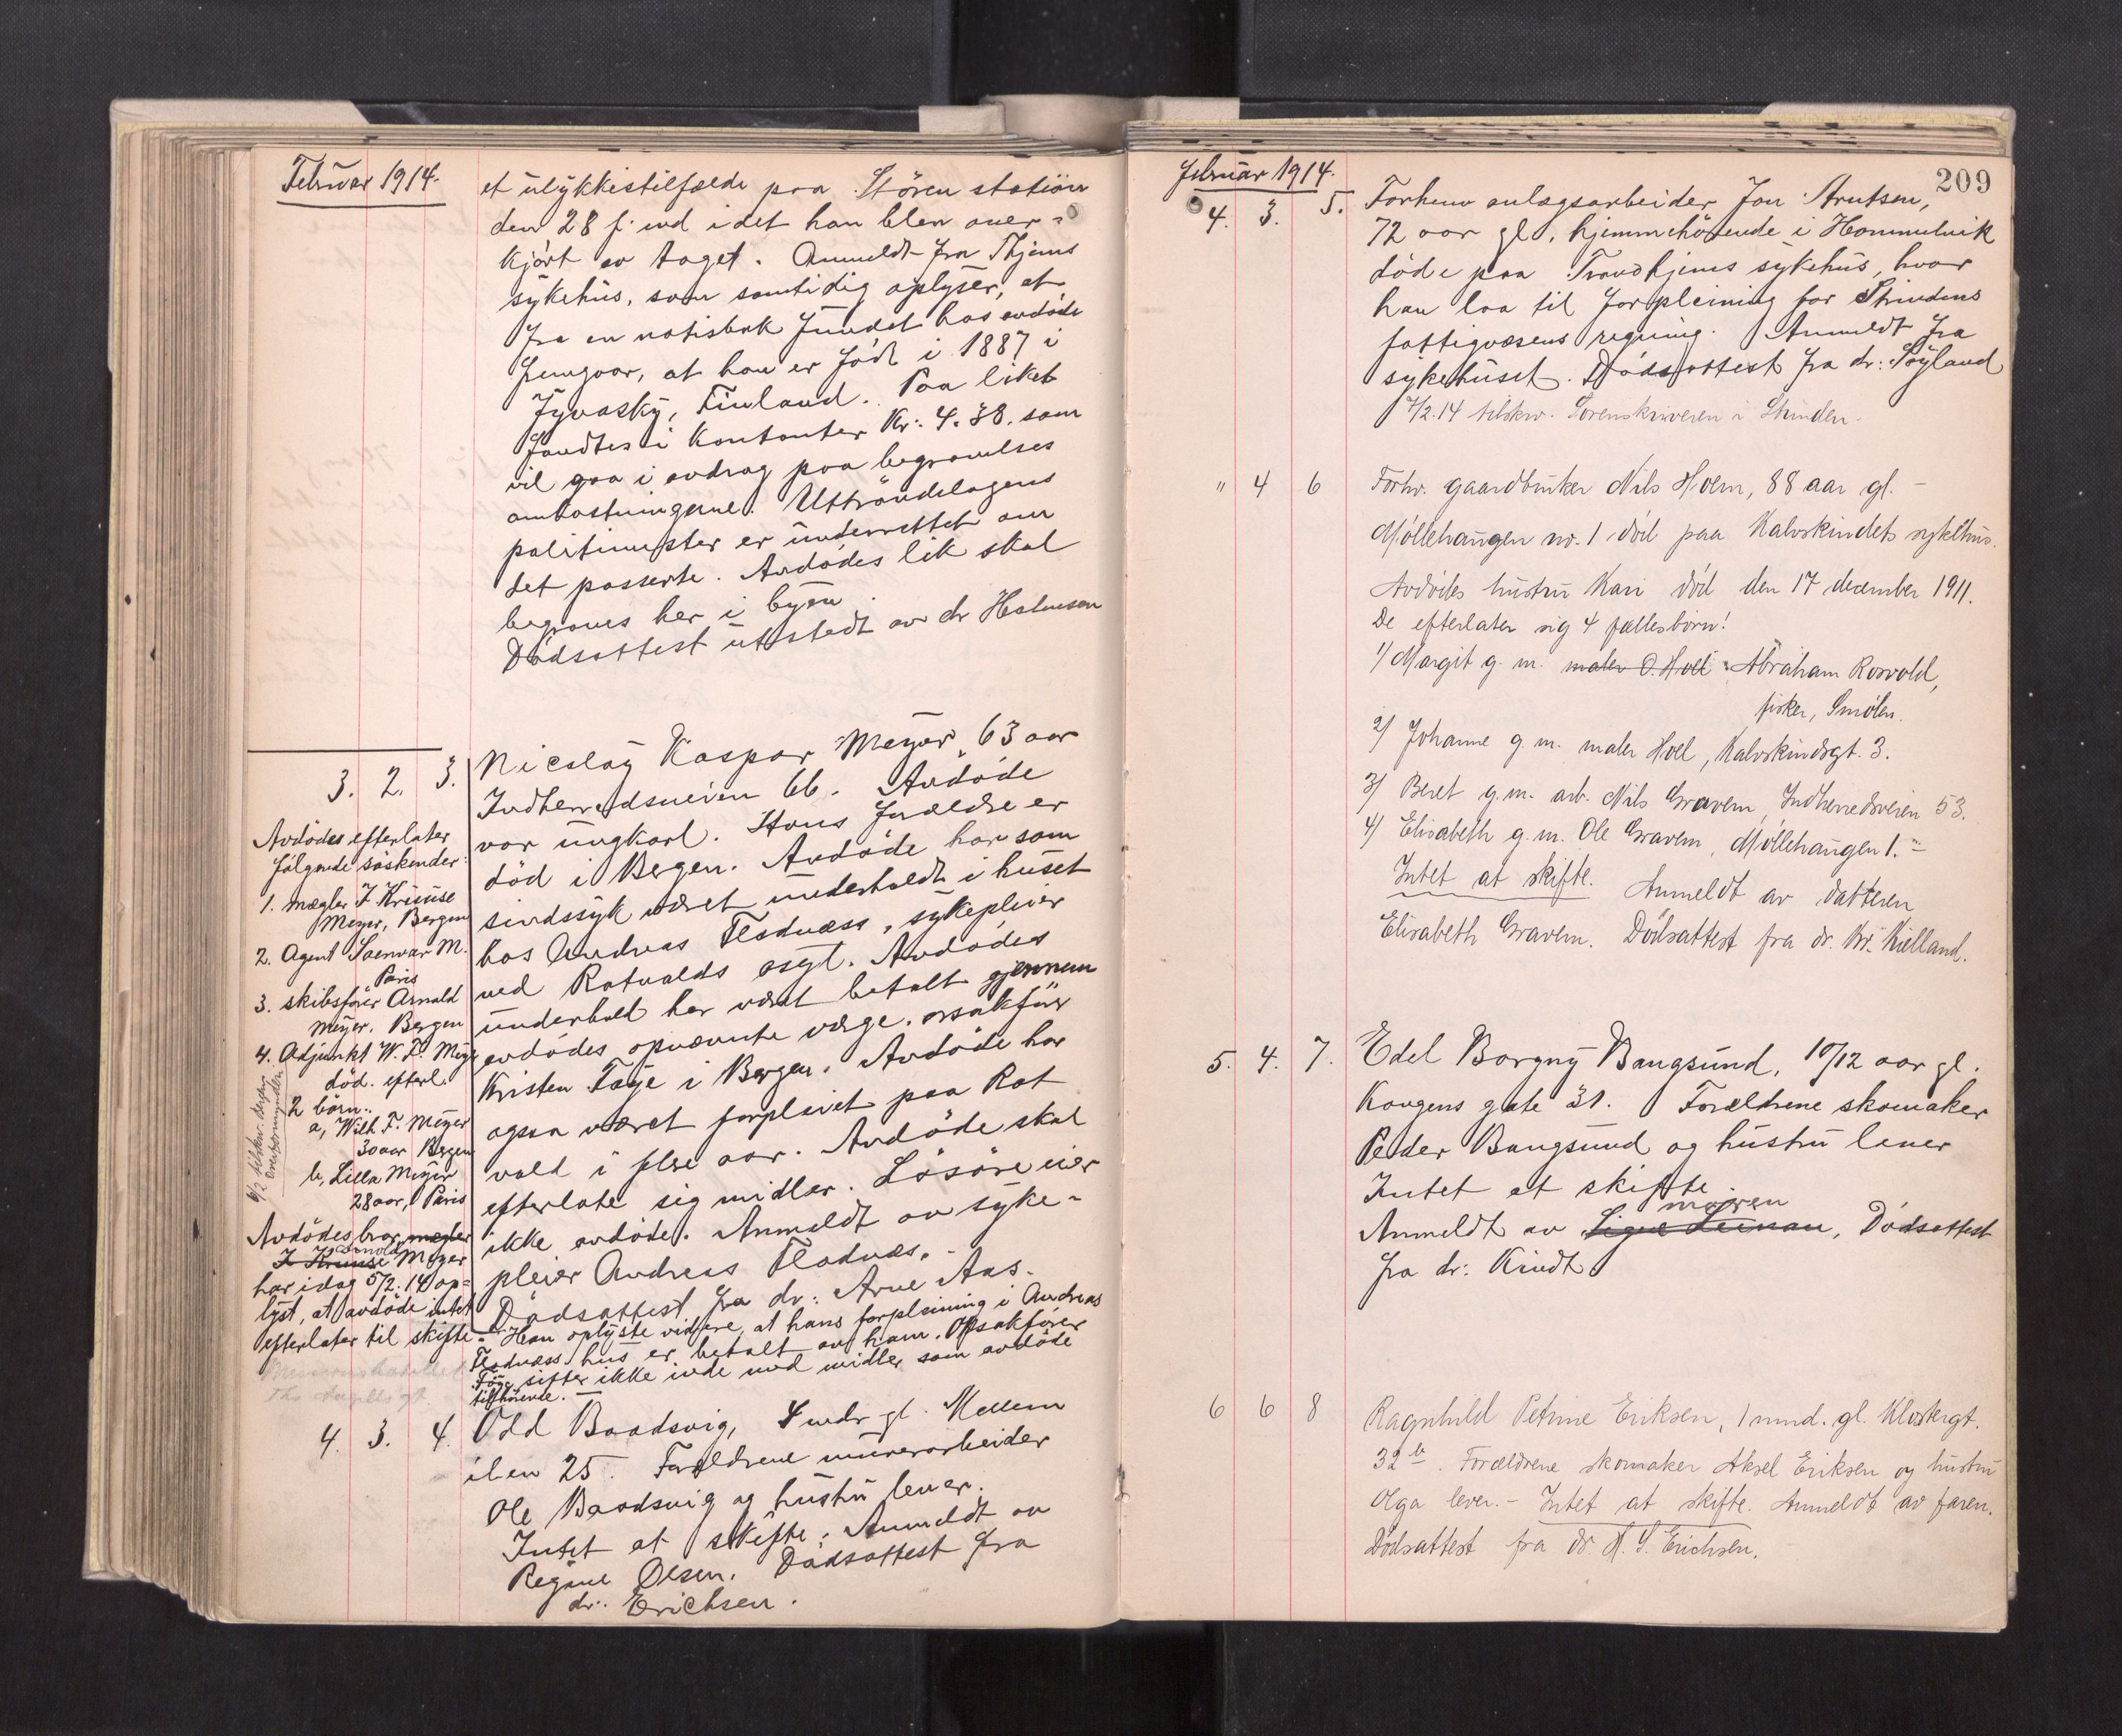 Februar 1914.
et ulykkestilfælde paa Stören station
den 28 f. md i det han blev over-
kjört av toget. Anmeldt fra Thjems
sykehus, som samtidig oplyser, at
fra en notisbok fundet hos avdöde
fremgaar, at han er föd i 1887 i
Jyvasky, Finland. Paa liket
fandtes i Kontanter Kr: 4.38. som
vil gaa i avdrag paa begravelses
omkostningerne. Uttröndelagens
politimester er underrettet om
det passerte. Avdödes lik skal
begraves her i byen.
Dödsattest utstedt av dr Halmsen
3. 2. 3.
Nicolay Kaspar Meyer, 63 aar
Indherredsveien 66. Avdöde
var ungkarl. Hans forældre er
död i Bergen. Avdöde har som
sindssyk været underholdt i huset
hos Andreas Flodnæss, sykepleier
ved Rotvolds asyl. Avdödes
underhold har været betalt gjennem
avdödes opnævnte værge, orsakförer
Kristen Faye i Bergen. Avdöde har
ogsaa været forpleiet paa Rot
vold i flere aar. Avdöde skal
efterlate sig midler. Lösöre eier
ikke avdöde. Anmeldt av syke-
pleier Andreas Flodnæs. -
Dödsattest fra dr: Arne Aas.
Avdödes efterlater
fölgende söskender:
1. mægler J Kruuse
Meyer, Bergen
2. Agent M.
Paris
3. skibsförer Arnold
Meyer. Bergen
4. Adjunkt W. F. Meyer
död. efterl.
2 börn:
a, Wilh. F. Meyer
30 aar Bergen
b, Lilla Meyer
28 aar, Paris
6/2 tilskr. Bergens
overformynderi
Avdödes bror mægler
J. Kruuse Arnold Meyer
har idag 5/2. 14 op-
lyst, at avdöde intet
efterlater til skifte - Han oplyste videre, at hans forpleining i Andreas
Flodnæss hus er betalt av ham. Orsakförer
Faye sitter ikke inde med midler som avdöde
tilhörende. -
4. 3. 4.
Odd Baadsvig, 4 mdr gl. Mellem
ilen 25. Forældrene murerarbeider
Ole Baadsvig og hustru lever.
Intet at skifte. Anmeldt av
Regine Olsen. Dödsattest fra
dr.. Erichsen.
Februar 1914.
209
4. 3. 5.
Forhenv anlægsarbeider Jon Arntsen,
72 aar gl. hjemmehörende i Hommelvik
döde paa Trondhjems sykehus, hvor
han laa til forpleining for Strindens
fattigvæsens regning. Anmeldt fra
sykehuset. Dödsattest fra dr: Söyland
7/2.14 tilskr. Sorenskriveren i Strinden.
" 4 6
Forhv. gaardbruker Nils Hoem, 88 aar gl. -
Möllehaugen no. 1 död paa Kalvskindets sykehus.
Avdödes hustru Kari död den 17 december 1911.
De efterlater sig 4 fællesbörn!
1/ Margit g. m. maler O. Hoel Abraham Rosvold,
fisker, Smölen.
2/ Johanne g. m. maler Hoel, Kalvskindsgt. 3.
3/ Beret g. m. arb. Nils Gravem, Indherredsveien 53.
4/ Elisabeth g. m. Ole Gravem, Möllehaugen 1. -
Intet at skifte. Anmeldt av datteren
Elisabeth Gravem. Dödsattest fra dr. Kr. Kielland.
5. 4. 7.
Edel Borgny Bangsund, 10/12 aar gl.
Kongens gate 31. Forældrene skomaker
Peder Bangsund og hustru lever
Intet at skifte.
moren
Anmeldt av Signe Leinan, Dödsattest
fra dr: Kindt
6 6 8
Ragnhild Petrine Eriksen, 1 mnd. gl. Klostergt.
32 b. Forældrene skomaker Aksel Eriksen og hustru
Olga lever. - Intet at skifte. Anmeldt av faren.
Dödsattest fra dr. H. S. Erichsen.